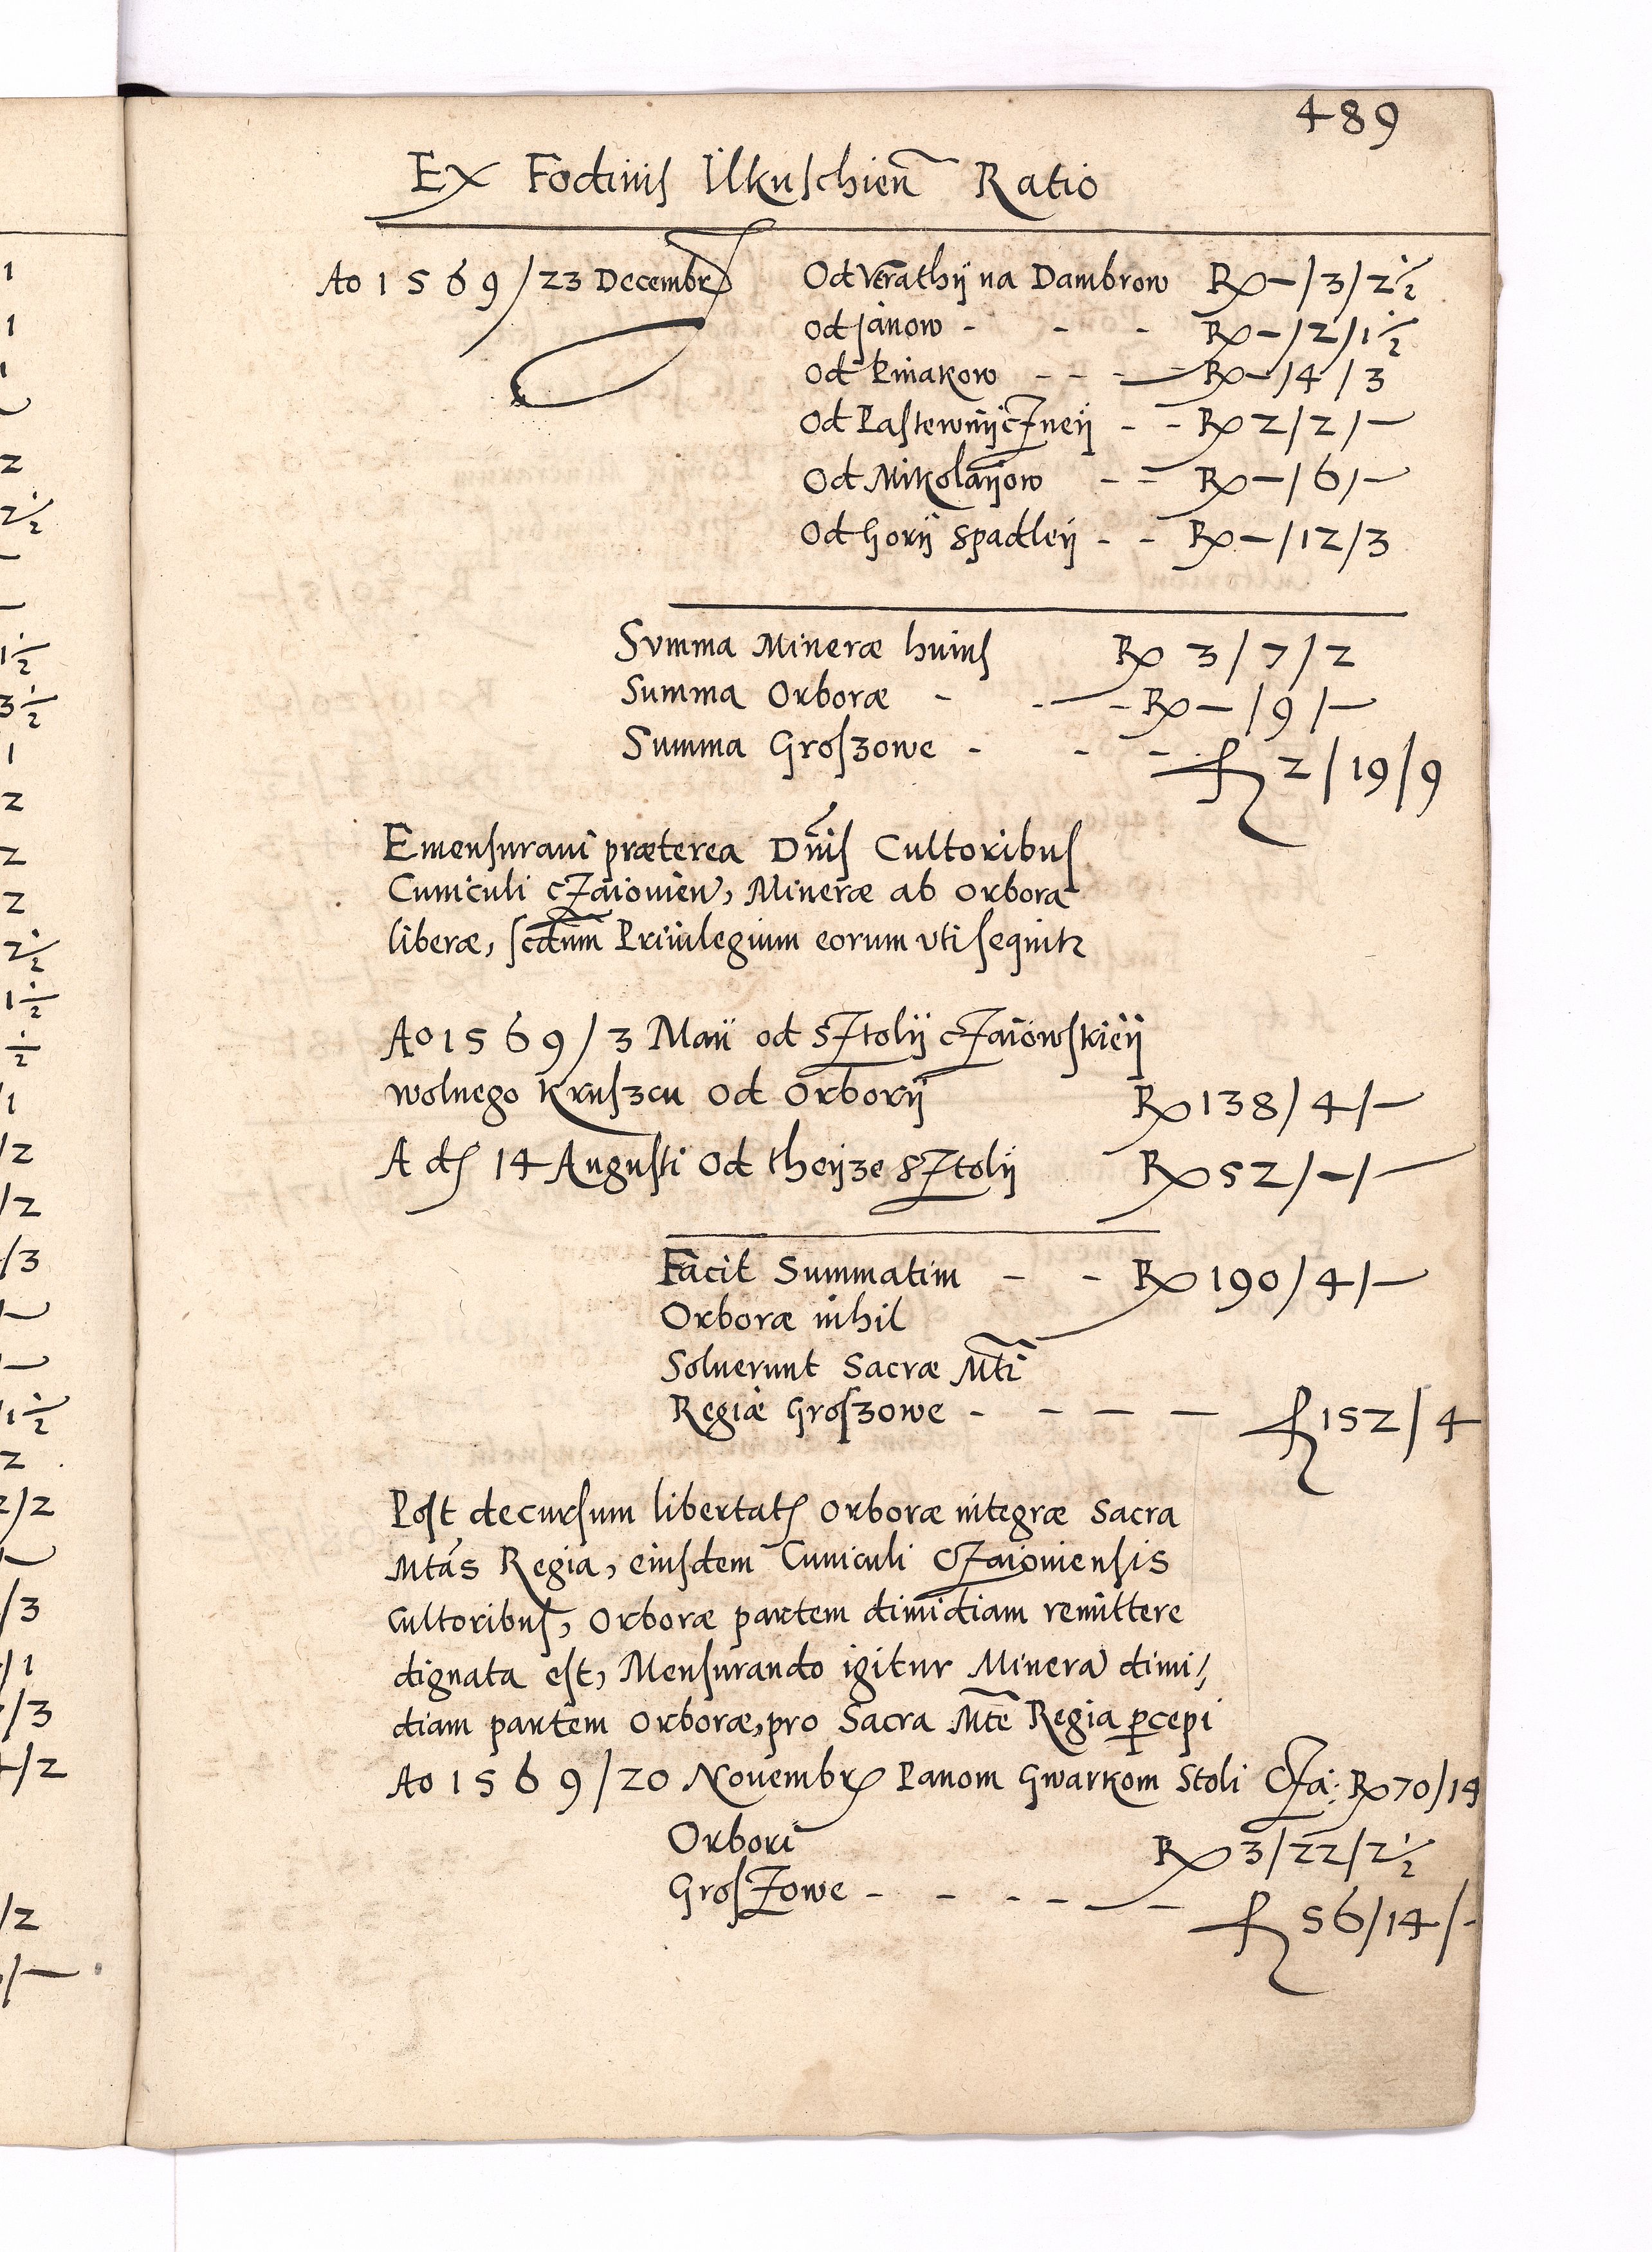 489
Ex Fodinis Ilkuschien̄ Ratio
Ao 1569/23 Decembr Od Verathÿ na Dambrow R -/3/2½
Od Janow - - - R -/2/1½
Od kmiakow - - - R -/4/3
Od Pastewniÿczneÿ - - R 2/2/-
Od Mikolaÿow - - R -/6/-
Od horÿ spadleÿ - - R -/12/3
Summa Mineræ huius R 3/7/2
Summa Orboræ - - - R -/9/-
Summa Groszowe - - - f 2/19/9
Emensuraui præterea Dn̄is Cultoribus
Cuniculi czaiouien, Mineræ ab orbora
liberæ, scdum Priuilegium eorum vti sequitr
Ao 1569/3 Maii od sztolÿ czaiowskieÿ
wolnego kruszcu od orborÿ R 138/4/-
A d 14 Augusti od theÿze sztolÿ R 52/-/-
Facit Summatim - - R 190/4/-
Orboræ nihil
Soluerunt Sacræ Mti
Regiæ Groszowe - - - - f 152/4
Post decursum libertatis orboræ integræ Sacra
Mtas Regia, eiusdem Cuniculi Czaiouiensis
Cultoribus, Orboræ partem dimidiam remittere
dignata est, Mensurando igitur Minera dimi/
diam partem Orboræ, pro Sacra Mte Regia pcepi
Ao 1569/20 Nouembr Panom Gwarkom Stoli Cza: R 70/14
Orbori R 3/22/2½
Groszowe - - - - - f 56/14/-